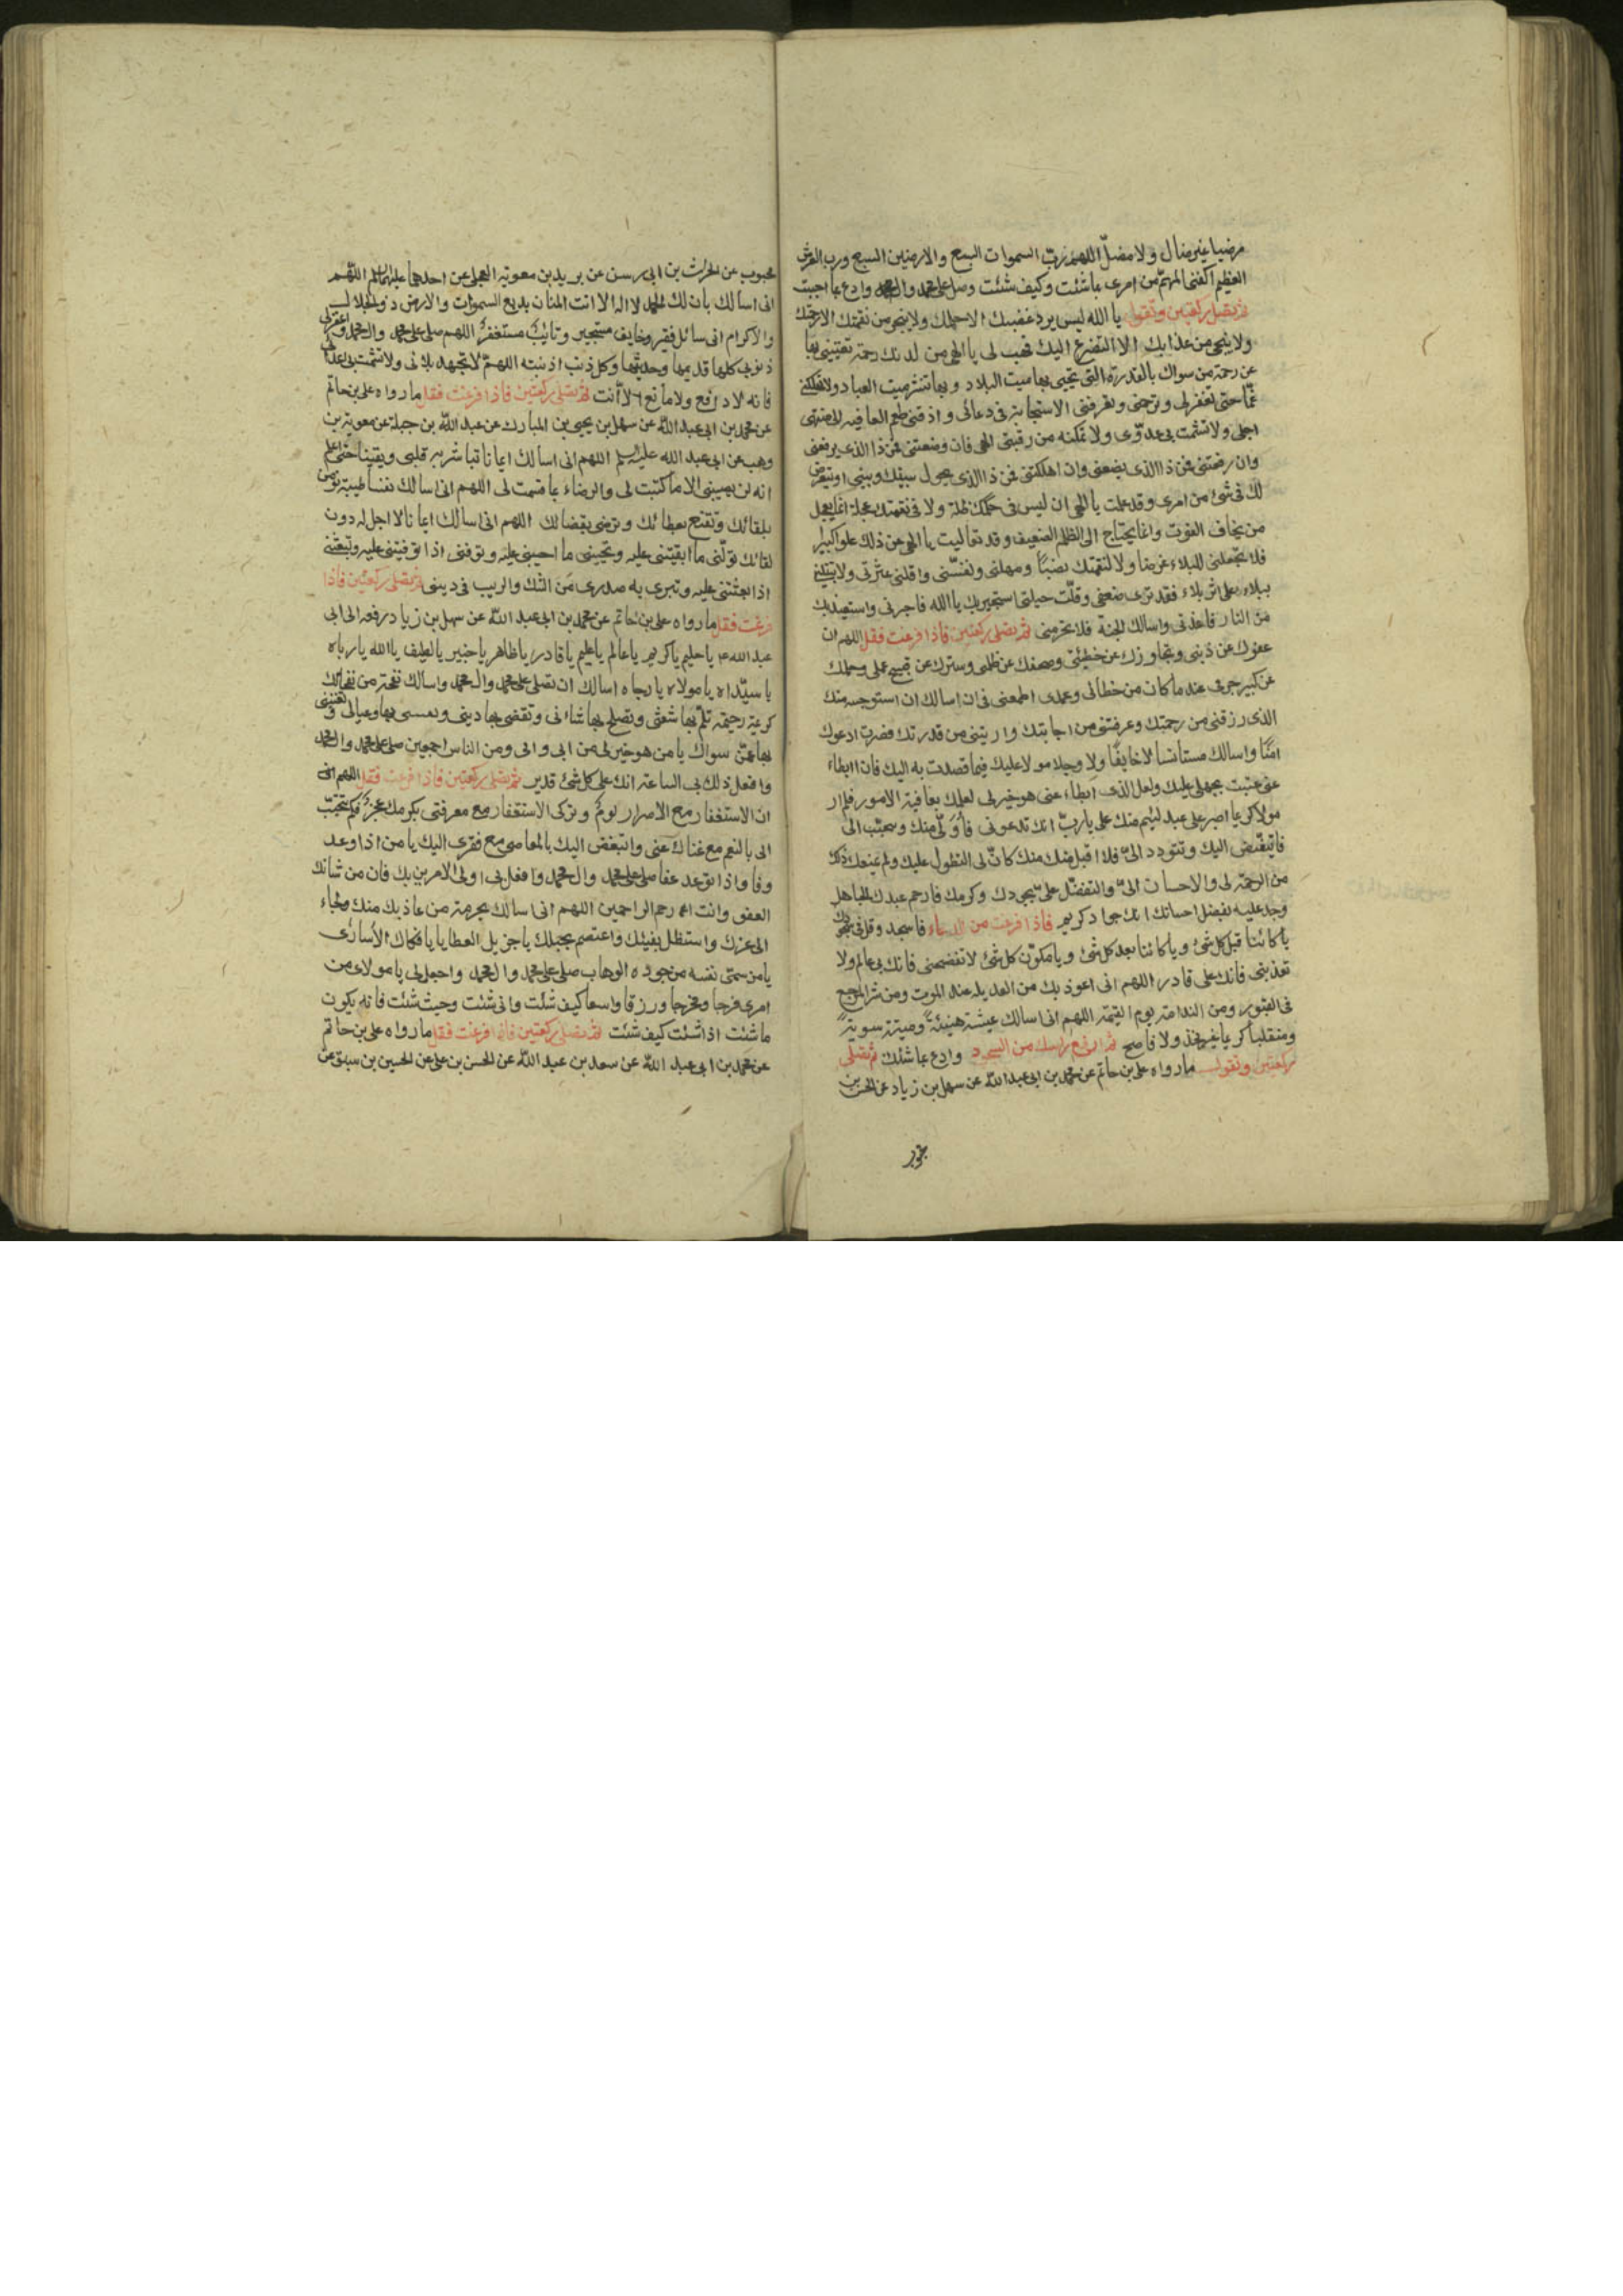 مرضيا غير ضال ولا مضل اللهم رب السموات السبع والارضين السبع ورب العرش
العظيم اكفنى المهم من امرى بما شئت وكيف شئت وصل على محمد وال محمد وادع بما احببت
ثم تصلى ركعتين وتقول يا الله ليس يرد غضبك الا حلمك ولا ينجى من نقمتك الا رحمتك
ولا ينجى من عذابك الا التضرع اليك فهب لى يا الهى من لدنك رحمة تغنينى بها
عن رحمة من سواك بالقدرة التى تحيى بها ميت البلاد وبها تنشر ميت العباد ولا تهلكنى
غما حتى تغفر لى وترحمنى وتعرفنى الاستجابة فى دعائى واذقنى طعم العافيه الى منتهى
اجلى ولا تشمت بى عدوى ولا تمكنه من رقبتى الهى فان وضعتنى فمن ذا الذى يرفعنى
وان رفعتنى فمن ذا الذى يضعنى وان اهلكتنى فمن ذا الذى يحول بينك وبينى او يتعرض
لك فى شئ من امرى وقد علمت يا الهى ان ليس فى حكمك ظلم ولا فى نقمتك عجلة انما يعجل
من يخاف الفوت وانما يحتاج الى الظلم الضعيف وقد تعاليت يا الهى عن ذلك علوا كبيرا
فلا تجعلنى للبلاء غرضا ولا لنقمتك نصبا ومهلنى ونفسنى واقلنى عثرتى ولا تبتلينى
ببلاء على اثر بلاء فقد ترى ضعفى وقلت حيلتى استجير بك يا الله فاجرنى واستعيذ بك
من النار فاعذنى واسالك الجنة فلا تحرمنى ثم تصلى ركعتين فاذا فرغت فقل اللهم ان
عفوك عن ذنبى وتجاوزك عن خطيئتى وصفحك عن ظلمى وسترك عن قبيح عملى وحلمك
عن كبير جرمى عند ما كان من خطائى وعمدى اطمعنى فى ان اسالك ما لا استوجبه منك
الذى رزقتنى من رحمتك وعرفتنى من اجابتك واريتنى من قدرتك فصرت ادعوك
امنا واسالك مستانسا لا خايفا ولا وجلا مدلا عليك فيما قصدت به اليك فان ابطاء
عنى عتبت بجهلى عليك ولعل الذى ابطاء عنى هو خير لى لعلمك بعاقبة الامور فلم ار
مولا كريما اصبر على عبد لئيم منك على يا رب انك تدعونى فاولى منك وتتحبب الى
فاتبغض اليك وتتودد الى فلا اقبل منك كان لى التطول عليك ولم يمنعك ذلك
من الرحمة لى والاحسان الى والتفضل على بجودك وكرمك فارحم عبدك الجاهل
وجد عليه بفضل احسانك انك جواد كريم فاذا فرغت من الدعاء فاسجد وقل فى سجودك
يا كائنا قبل كل شئ ويا كائنا بعد كل شئ ويا مكون كل شئ لا تفضحنى فانك بى عالم ولا
تعذبنى فانك على قادر اللهم انى اعوذ بك من العديله عند الموت ومن شر المرجع
فى القبور ومن الندامة يوم القيمة اللهم انى اسالك عيشة هنيئة وميتة سوية
ومنقلبا كريما غير مخز ولا فاضح ثم ارفع راسك من السجود وادع بما شئت ثم تصلى
ركعتين وتقول ما رواه على بن حاتم عن محمد بن ابى عبد الله عن سهل بن زياد عن الحسن بن
محبوب عن الحارث بن ابى رسن عن بريد بن معوية العجلى عن احدهما عليهما السلم اللهم
انى اسالك بان لك الحمد لا اله الا انت المنان بديع السموات والارض ذو الجلال
والاكرام انى سائل فقير وخايف مستجير وتائب مستغفر اللهم صل على محمد وال محمد واغفر لى
ذنوبى كلها قديمها وحديثها وكل ذنب اذنبته اللهم لا تجهد بلائى ولا تشمت بى اعدائى
فانه لا دافع ولا مانع الا انت ثم تصلى ركعتين فاذا فرغت فقل ما رواه على بن حاتم
عن محمد بن ابى عبد الله عن سهل بن يحيى بن المبارك عن عبد الله بن جبلة عن معوية بن
وهب عن ابى عبد الله عليه السلم اللهم انى اسالك ايمانا تباشر به قلبى ويقينا حتى اعلم
انه لن يصيبنى الا ما كتبت لى والرضاء بما قسمت لى اللهم انى اسالك نفسا طيبة تومن
بلقائك وتقنع بعطائك وترضى بقضائك اللهم انى اسالك ايمانا لا اجل له دون
لقائك تولنى ما ابقيتنى عليه وتحيينى ما احييتنى عليه وتوفنى اذا توفيتنى عليه وتبعثنى
اذا بعثتنى عليه وتبرى به صدرى من الشك والريب فى دينى ثم تصلى ركعتين فاذا
فرغت فقل ما رواه على بن حاتم عن محمد بن ابى عبد الله عن سهل بن زياد رفعه الى ابى
عبد الله ع يا حليم يا كريم يا عالم يا عليم يا قادر يا ظاهر يا خبير يا لطيف يا الله يا رباه
يا سيداه يا مولاه يا رجاه اسالك ان تصلى على محمد وال محمد واسالك نفحة من نفحاتك
كريمة رحيمة تلم بها شعثى وتصلح بها شانى وتقضى بها دينى وتنعشنى بها وعيالى وتغنينى
بها عمن سواك يا من هو خير لى من ابى وامى ومن الناس اجمعين صل على محمد وال محمد
وافعل ذلك بى الساعة انك على كل شئ قدير ثم تصلى ركعتين فاذا فرغت فقل اللهم انى
ان الاستغفار مع الاصرار لوم وتركى الاستغفار مع معرفتى بكرمك عجز فكم تتحبب
الى بالنعم مع غناك عنى واتبغض اليك بالمعاصى مع فقرى اليك يا من اذا وعد
وفا واذا توعد عفا صل على محمد وال محمد وافعل بى اولى الامرين بك فان من شانك
العفو وانت ارحم الراحمين اللهم انى اسالك بحرمة من عاذ بك منك ولجاء
الى عزك واستظل بفيئك واعتصم بحبلك يا جزيل العطايا يا فكاك الاسارى
يا من سمى نفسه من جوده الوهاب صل على محمد وال محمد واجعل لى يا مولاى من
امرى فرجا ومخرجا ورزقا واسعا كيف شئت وانى شئت وحيث شئت فانه يكون
ما شئت اذا شئت كيف شئت ثم تصلى ركعتين فاذا فرغت فقل ما رواه على بن حاتم
عن محمد بن ابى عبد الله عن سعد بن عبد الله عن الحسن بن على عن الحسين بن سيف عن